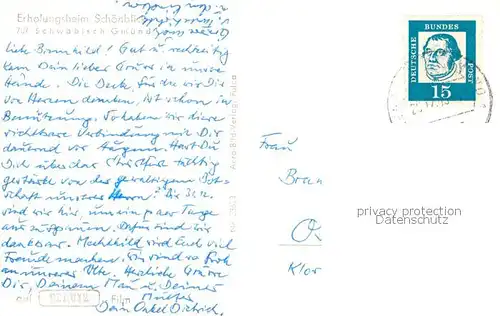 Erholungsheim Schönblick
707 Schwäbisch Gmünd
liebe Brunhild! Gut u. rechtzeitig
kam Dein lieber Gruss in unsre
Hände. Die Decke, für die wir Dir
von Herzen danken, ist schon in
Benützung. So haben wir diese
sichtbare Verbindung mit Dir
dauernd vor Augen. Hast Du
Dich über das Christfest tüchtig
gestärkt von der gewaltigen Bot-
schaft unseres Herrn? Bis 31.12.
sind wir hier, um ein paar Tage
auszuspannen. Dafür sind wir
dankbar. Mechthild wird Euch viel
Freude machen. Wir sind so froh
an unserer Ute. Herzliche Grüsse
Dir, Deinem Mann u. Deiner
Mutter
Dein Onkel Dietrich.
auf Film
Aero-Bild-Verlag, Fulda
DEUTSCHE
BUNDES
POST
15
Frau
Klor
privacy protection
Datenschutz